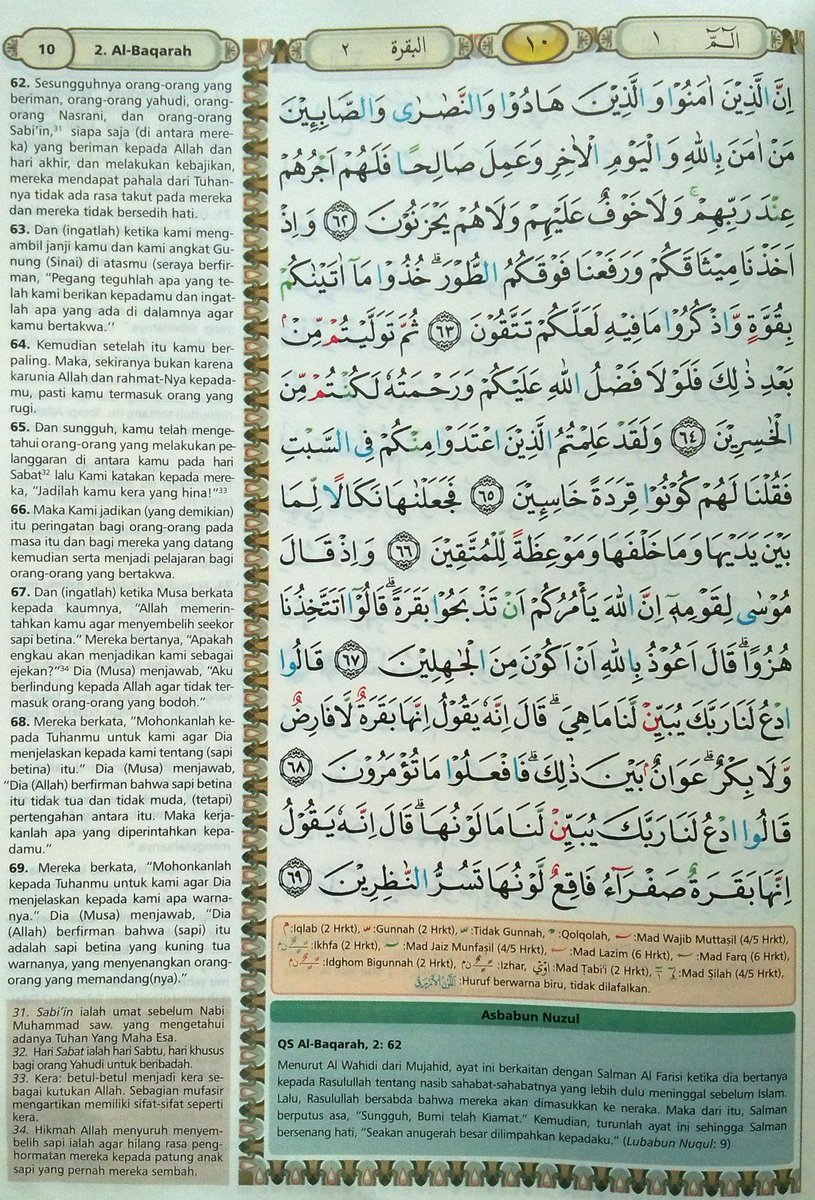 10 2. Al-Baqarah
البقرة ٢
١٠
الٓمّٓ ١
62. Sesungguhnya orang-orang yang
beriman, orang-orang yahudi, orang-
orang Nasrani, dan orang-orang
Sabi’in,³¹ siapa saja (di antara mere-
ka) yang beriman kepada Allah dan
hari akhir, dan melakukan kebajikan,
mereka mendapat pahala dari Tuhan-
nya tidak ada rasa takut pada mereka
dan mereka tidak bersedih hati.
63. Dan (ingatlah) ketika kami meng-
ambil janji kamu dan kami angkat Gu-
nung (Sinai) di atasmu (seraya berfir-
man, “Pegang teguhlah apa yang te-
lah kami berikan kepadamu dan ingat-
lah apa yang ada di dalamnya agar
kamu bertakwa.’’
64. Kemudian setelah itu kamu ber-
paling. Maka, sekiranya bukan karena
karunia Allah dan rahmat-Nya kepada-
mu, pasti kamu termasuk orang yang
rugi.
65. Dan sungguh, kamu telah menge-
tahui orang-orang yang melakukan pe-
langgaran di antara kamu pada hari
Sabat³² lalu Kami katakan kepada mere-
ka, “Jadilah kamu kera yang hina!”³³
66. Maka Kami jadikan (yang demikian)
itu peringatan bagi orang-orang pada
masa itu dan bagi mereka yang datang
kemudian serta menjadi pelajaran bagi
orang-orang yang bertakwa.
67. Dan (ingatlah) ketika Musa berkata
kepada kaumnya, “Allah memerin-
tahkan kamu agar menyembelih seekor
sapi betina.” Mereka bertanya, “Apakah
engkau akan menjadikan kami sebagai
ejekan?”³⁴ Dia (Musa) menjawab, “Aku
berlindung kepada Allah agar tidak ter-
masuk orang-orang yang bodoh.”
68. Mereka berkata, “Mohonkanlah ke-
pada Tuhanmu untuk kami agar Dia
menjelaskan kepada kami tentang (sapi
betina) itu.” Dia (Musa) menjawab,
“Dia (Allah) berfirman bahwa sapi betina
itu tidak tua dan tidak muda, (tetapi)
pertengahan antara itu. Maka kerja-
kanlah apa yang diperintahkan kepa-
damu.”
69. Mereka berkata, “Mohonkanlah
kepada Tuhanmu untuk kami agar Dia
menjelaskan kepada kami apa warna-
nya.” Dia (Musa) menjawab, “Dia
(Allah) berfirman bahwa (sapi) itu
adalah sapi betina yang kuning tua
warnanya, yang menyenangkan orang-
orang yang memandang(nya).”
31. Sabi’in ialah umat sebelum Nabi
Muhammad saw. yang mengetahui
adanya Tuhan Yang Maha Esa.
32. Hari Sabat ialah hari Sabtu, hari khusus
bagi orang Yahudi untuk beribadah.
33. Kera: betul-betul menjadi kera se-
bagai kutukan Allah. Sebagian mufasir
mengartikan memiliki sifat-sifat seperti
kera.
34. Hikmah Allah menyuruh menyem-
belih sapi ialah agar hilang rasa peng-
hormatan mereka kepada patung anak
sapi yang pernah mereka sembah.
اِنَّ الَّذِيْنَ اٰمَنُوْا وَالَّذِيْنَ هَادُوْا وَالنَّصٰرٰى وَالصَّابِــِٕيْنَ
مَنْ اٰمَنَ بِاللّٰهِ وَالْيَوْمِ الْاٰخِرِ وَعَمِلَ صَالِحًا فَلَهُمْ اَجْرُهُمْ
عِنْدَ رَبِّهِمْۚ وَلَا خَوْفٌ عَلَيْهِمْ وَلَا هُمْ يَحْزَنُوْنَ ٦٢ وَاِذْ
اَخَذْنَا مِيْثَاقَكُمْ وَرَفَعْنَا فَوْقَكُمُ الطُّوْرَۗ خُذُوْا مَآ اٰتَيْنٰكُمْ
بِقُوَّةٍ وَّاذْكُرُوْا مَا فِيْهِ لَعَلَّكُمْ تَتَّقُوْنَ ٦٣ ثُمَّ تَوَلَّيْتُمْ مِّنْۢ
بَعْدِ ذٰلِكَ فَلَوْلَا فَضْلُ اللّٰهِ عَلَيْكُمْ وَرَحْمَتُهٗ لَكُنْتُمْ مِّنَ
الْخٰسِرِيْنَ ٦٤ وَلَقَدْ عَلِمْتُمُ الَّذِيْنَ اعْتَدَوْا مِنْكُمْ فِى السَّبْتِ
فَقُلْنَا لَهُمْ كُوْنُوْا قِرَدَةً خَاسِــِٕيْنَ ٦٥ فَجَعَلْنٰهَا نَكَالًا لِّمَا
بَيْنَ يَدَيْهَا وَمَا خَلْفَهَا وَمَوْعِظَةً لِّلْمُتَّقِيْنَ ٦٦ وَاِذْ قَالَ
مُوْسٰى لِقَوْمِهٖٓ اِنَّ اللّٰهَ يَأْمُرُكُمْ اَنْ تَذْبَحُوْا بَقَرَةًۗ قَالُوْٓا اَتَتَّخِذُنَا
هُزُوًاۗ قَالَ اَعُوْذُ بِاللّٰهِ اَنْ اَكُوْنَ مِنَ الْجٰهِلِيْنَ ٦٧ قَالُوا
ادْعُ لَنَا رَبَّكَ يُبَيِّنْ لَّنَا مَا هِيَۗ قَالَ اِنَّهٗ يَقُوْلُ اِنَّهَا بَقَرَةٌ لَّا فَارِضٌ
وَّلَا بِكْرٌۗ عَوَانٌۢ بَيْنَ ذٰلِكَۗ فَافْعَلُوْا مَا تُؤْمَرُوْنَ ٦٨
قَالُوا ادْعُ لَنَا رَبَّكَ يُبَيِّنْ لَّنَا مَا لَوْنُهَاۗ قَالَ اِنَّهٗ يَقُوْلُ
اِنَّهَا بَقَرَةٌ صَفْرَاۤءُ فَاقِعٌ لَّوْنُهَا تَسُرُّ النّٰظِرِيْنَ ٦٩
:Iqlab (2 Hrkt), :Gunnah (2 Hrkt), :Tidak Gunnah, :Qolqolah, :Mad Wajib Muttaṣil (4/5 Hrkt),
:Ikhfa (2 Hrkt), :Mad Jaiz Munfaṣil (4/5 Hrkt), :Mad Lazim (6 Hrkt), :Mad Farq (6 Hrkt),
:Idghom Bigunnah (2 Hrkt), :Izhar, :Mad Ṭabi’i (2 Hrkt), :Mad Ṣilah (4/5 Hrkt),
:Huruf berwarna biru, tidak dilafalkan.
Asbabun Nuzul
QS Al-Baqarah, 2: 62
Menurut Al Wahidi dari Mujahid, ayat ini berkaitan dengan Salman Al Farisi ketika dia bertanya
kepada Rasulullah tentang nasib sahabat-sahabatnya yang lebih dulu meninggal sebelum Islam.
Lalu, Rasulullah bersabda bahwa mereka akan dimasukkan ke neraka. Maka dari itu, Salman
berputus asa, “Sungguh, Bumi telah Kiamat.” Kemudian, turunlah ayat ini sehingga Salman
bersenang hati, “Seakan anugerah besar dilimpahkan kepadaku.” (Lubabun Nuqul: 9)